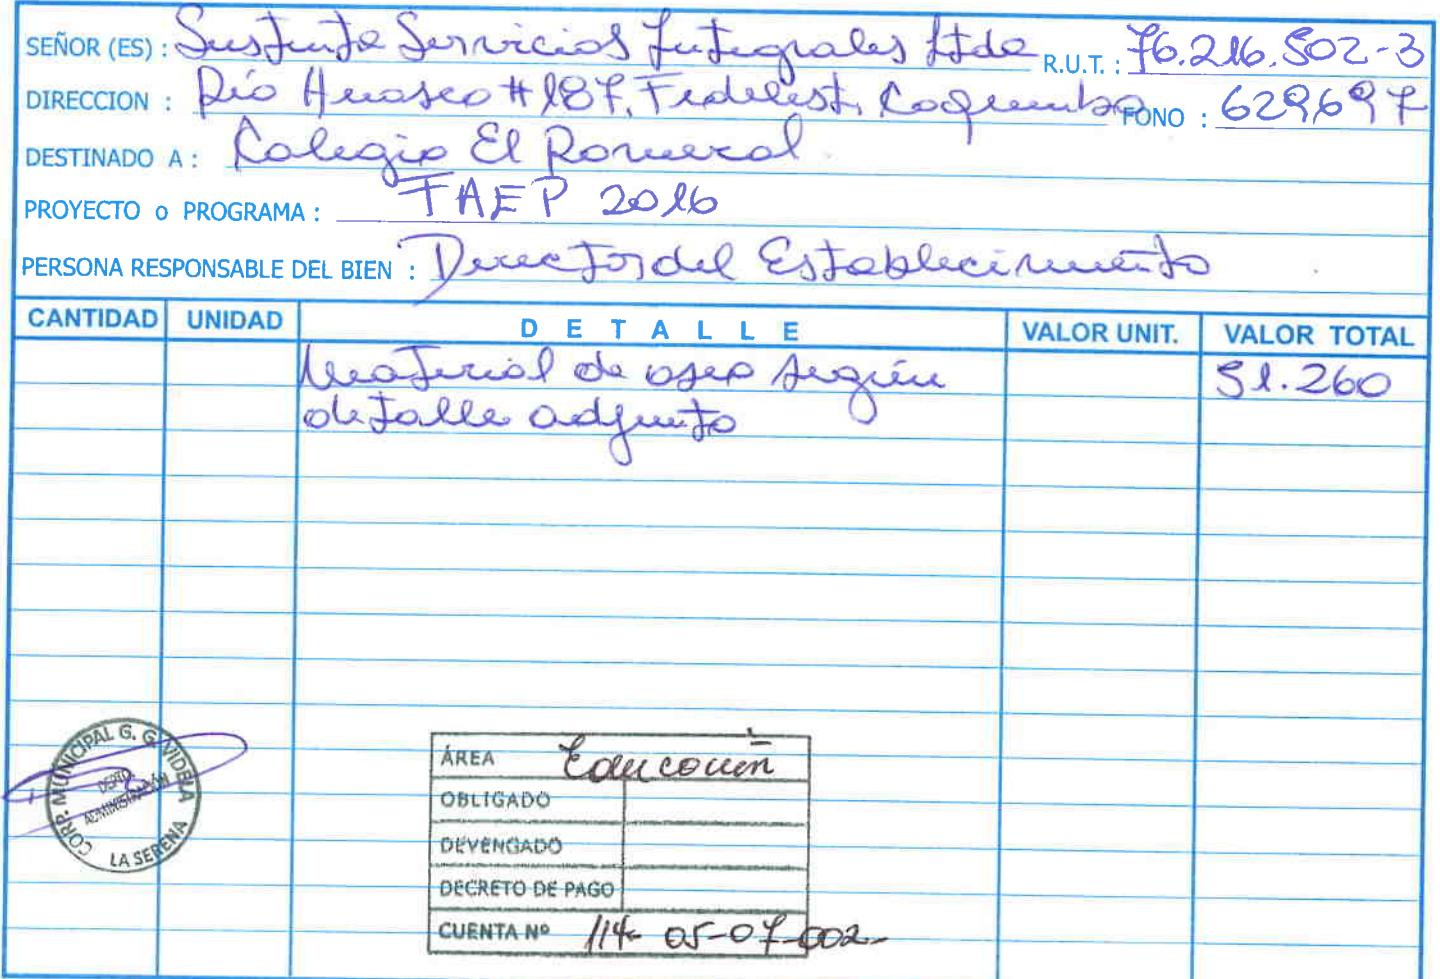 SEÑOR (ES) : Sustenta Servicios Integrales Ltda R.U.T. : 76.216.502-3
DIRECCION : Río Huasco #187, Tierras Coquimbo FONO : 629697
DESTINADO A : Colegio El Romeral
PROYECTO o PROGRAMA : FAEP 2016
PERSONA RESPONSABLE DEL BIEN : Director del Establecimiento
CANTIDAD UNIDAD DETALLE VALOR UNIT. VALOR TOTAL
Material de aseo según 51.260
detalle adjunto
CORP. MUNICIPAL G. G. VIDELA
DEPTO.
ADMINISTRACIÓN
LA SERENA
ÁREA Educación
OBLIGADO
DEVENGADO
DECRETO DE PAGO
CUENTA Nº 114-05-07-002-